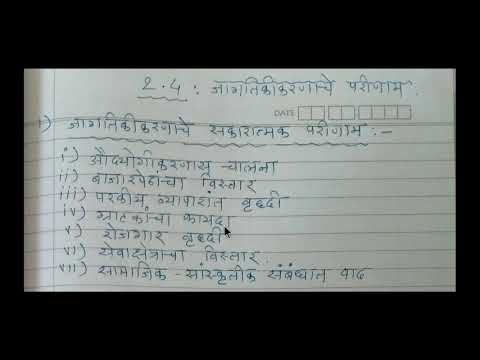 2.4 : जागतिकीकरणाचे परीणाम.
DATE
1) जागतिकीकरणाचे सकारात्मक परीणाम :-
i) औद्योगीकरणास चालना
ii) बाजारपेठांचा विस्तार
iii) परकीय व्यापारांत वृध्दी
iv) ग्राहकांचा फायदा
v) रोजगार वृध्दी
vi) सेवाक्षेत्राचा विस्तार.
vii) सामाजिक - सांस्कृतीक संबंधात वाढ